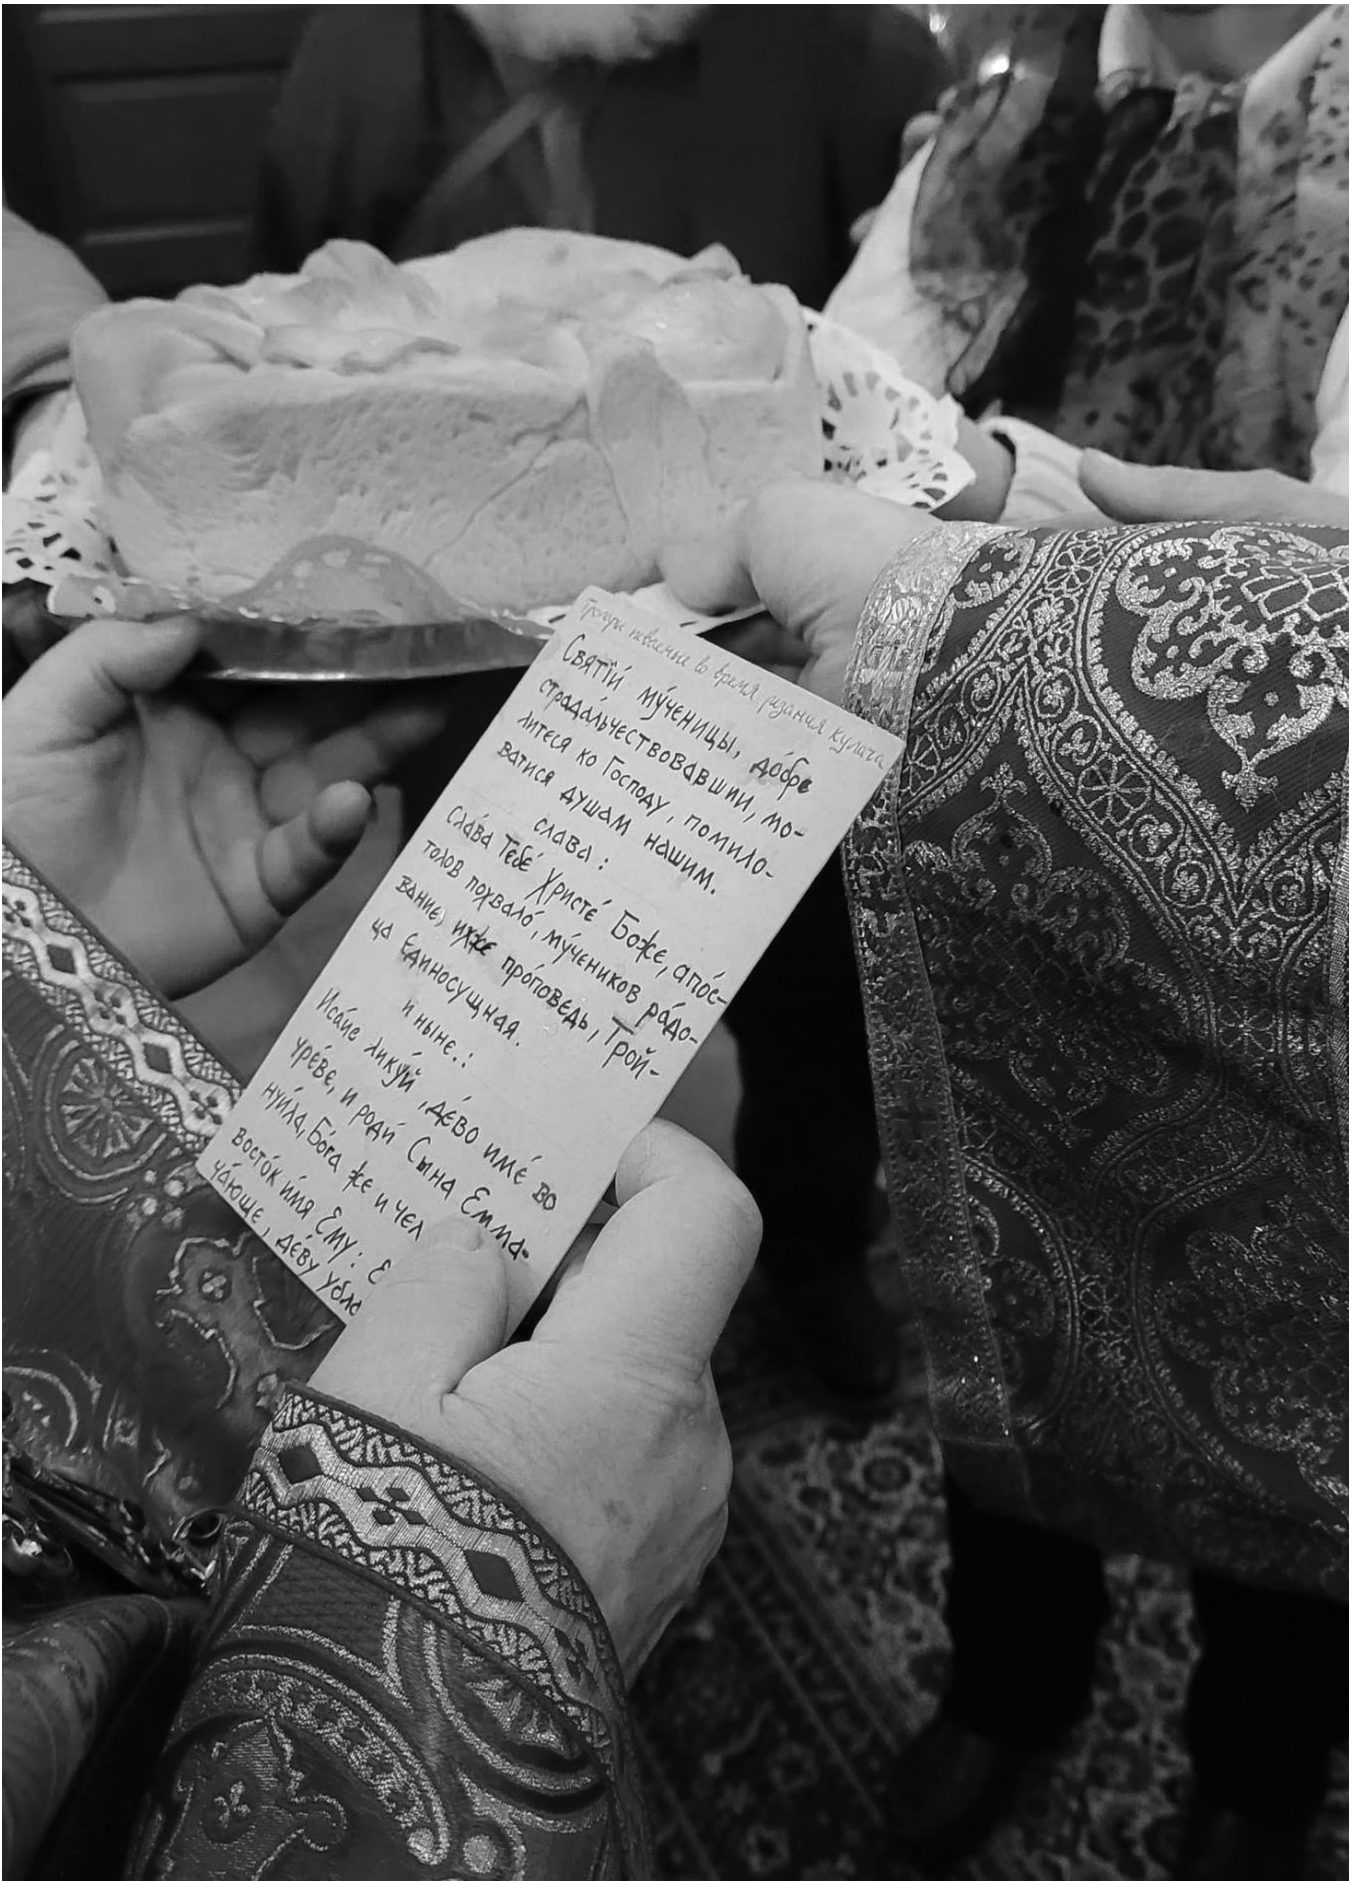 Тропари певаемые во время резания кулача
Святíи му́ченицы, до́бре
страда́льчествовавшии, мо-
литеся ко Господу, помило-
ватися душам нашим.
слава:
Сла́ва Тебе́ Христе́ Боже, апо́с-
толов похвало́, му́чеников ра́до-
вание, иxже про́поведь, Трой-
ца Единосущная.
и ныне.:
Иса́ие лику́й, де́во име́ во
чре́ве, и роди́ Сына Емма-
нуи́ла, Бо́га же и чел
восто́к и́мя Ему́: Е
ча́юще, де́ву убла